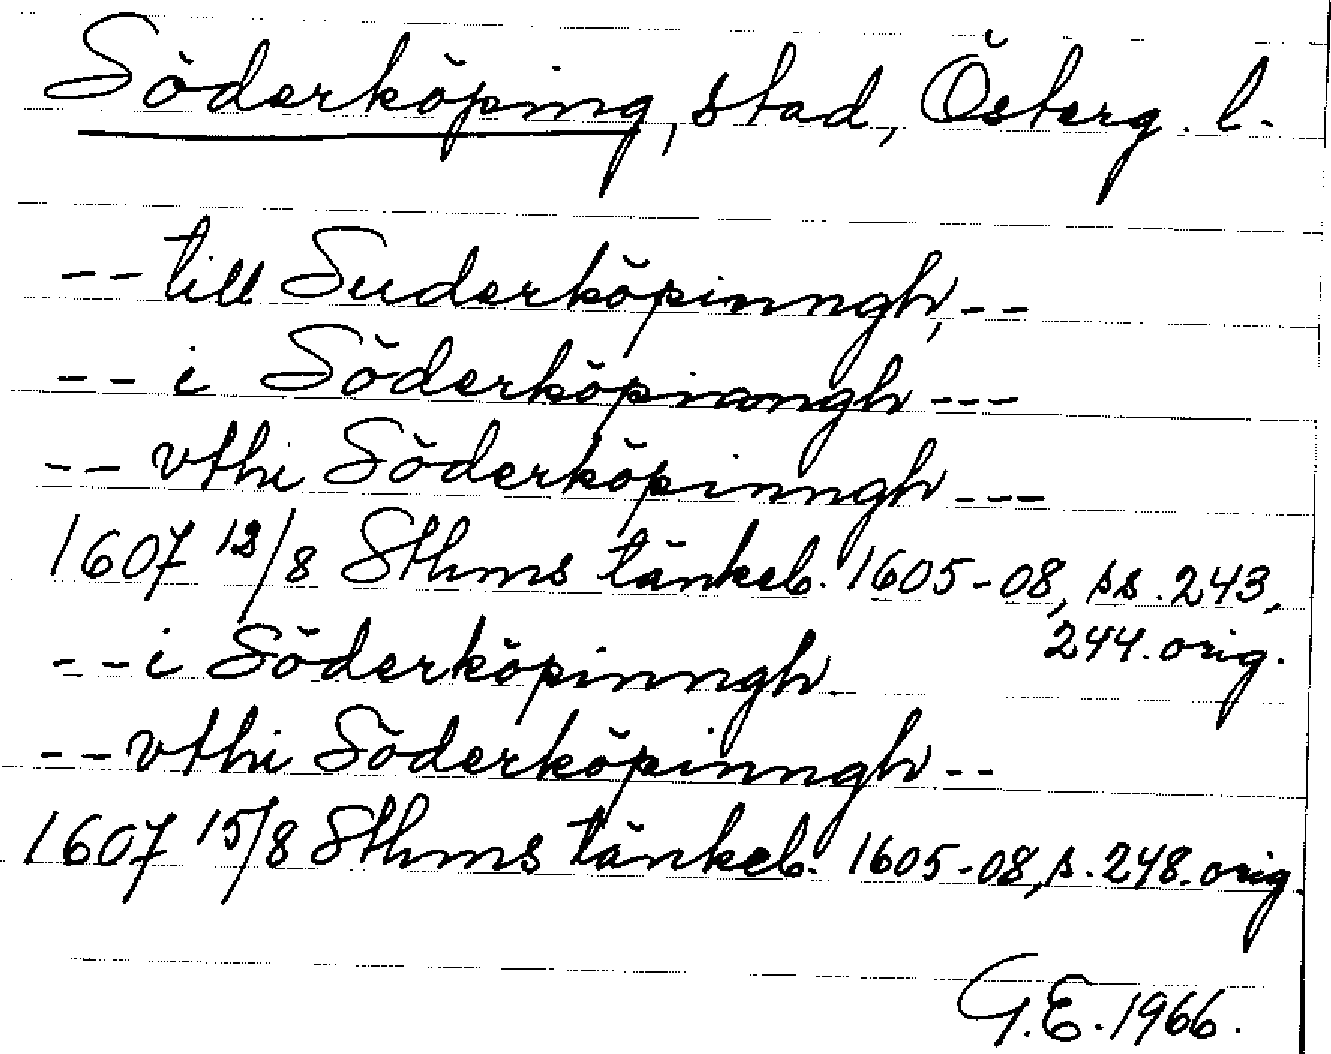 Söderköping, stad, Österg. l.
-- till Suderköpinngh, --
-- i Söderköpinngh ---
-- vthi Söderköpinngh ---
1607 12/8 Sthms tänkeb. 1605-08, ss. 243,
244. orig.
-- i Söderköpinngh
-- vthi Söderköpinngh --
1607 15/8 Sthms tänkeb. 1605-08, s. 248. orig.
G.E. 1966.